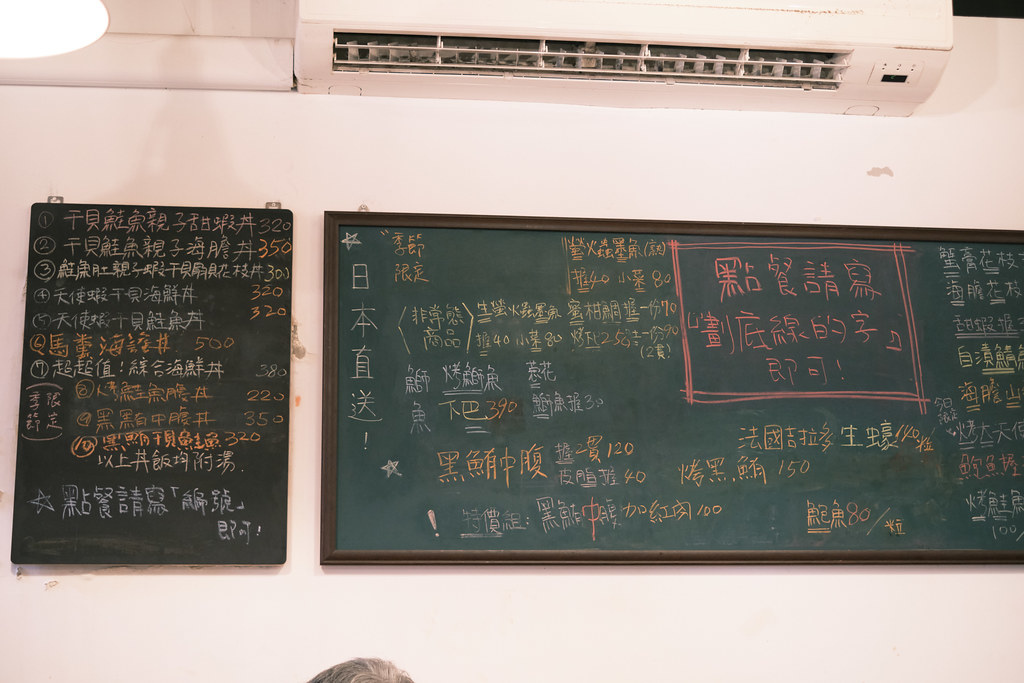 ① 干貝鮭魚親子甜蝦丼 320
② 干貝鮭魚親子海膽丼 350
③ 鮭魚肚親子蝦干貝明花枝丼 300
④ 天使蝦干貝海鮮丼 320
⑤ 天使蝦干貝鮭魚丼 320
⑥ 馬糞海膽丼 500
⑦ 超超值!綜合海鮮丼 380
季節限定
⑧ 鮭魚膽丼 220
⑨ 黑鮪中腹丼 350
⑩ 黑鮪干貝鮭魚 320
以上丼飯均附湯.
☆ 點餐請寫「編號」
即可!
☆ 日本直送!
季節
限定
螢火蟲墨魚(熟)
握40 小菜80
非常態
商品
生螢火蟲墨魚
握40 小菜80
蜜柑鯛 握一份70
(2貫)
鰤魚
烤鰤魚
下巴 390
蔥花
鰤魚握30
點餐請寫
『劃底線的字』
即可!
法國吉拉多生蠔140/粒
☆ 黑鮪中腹
握一貫120
皮脂握40
烤黑鮪 150
! 特價組: 黑鮪中腹加紅肉100
鮑魚80/粒
蟹膏花枝
海膽花枝
甜蝦握
自漬鯖魚
海膽山
今日
限定
烤大天使
鮑魚握
烤鮭魚
100/